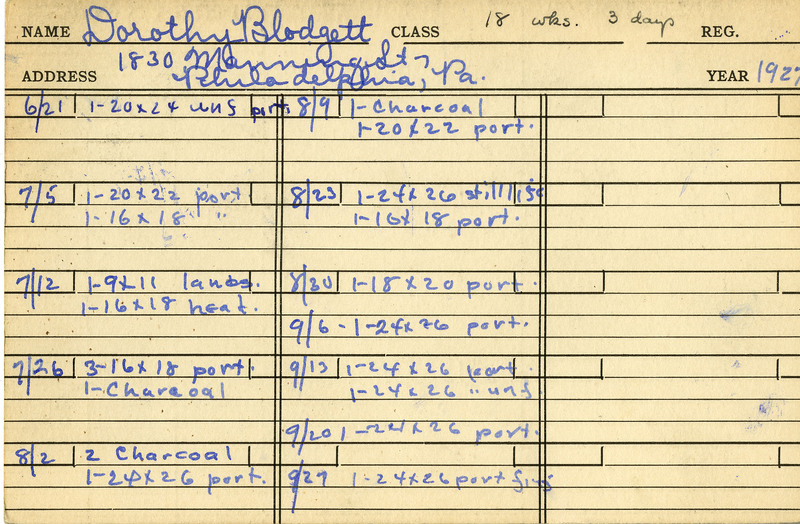 NAME Dorothy Blodgett CLASS 18 wks. 3 days REG.
1830 Manning St,
ADDRESS Philadelphia, Pa. YEAR 1927
6/21 1-20x24 uns port.
7/5 1-20x22 port.
1-16x18 "
7/12 1-9x11 lands.
1-16x18 heat.
7/26 3-16x18 port.
1-Charcoal
8/2 2 Charcoal
1-24x26 port.
8/9 1-Charcoal
1-20x22 port.
8/23 1-24x26 still life
1-16x18 port.
8/30 1-18x20 port.
9/6 - 1-24x26 port.
9/13 1-24x26 port.
1-24x26 " uns.
9/20 1-24x26 port.
9/27 1-24x26 port